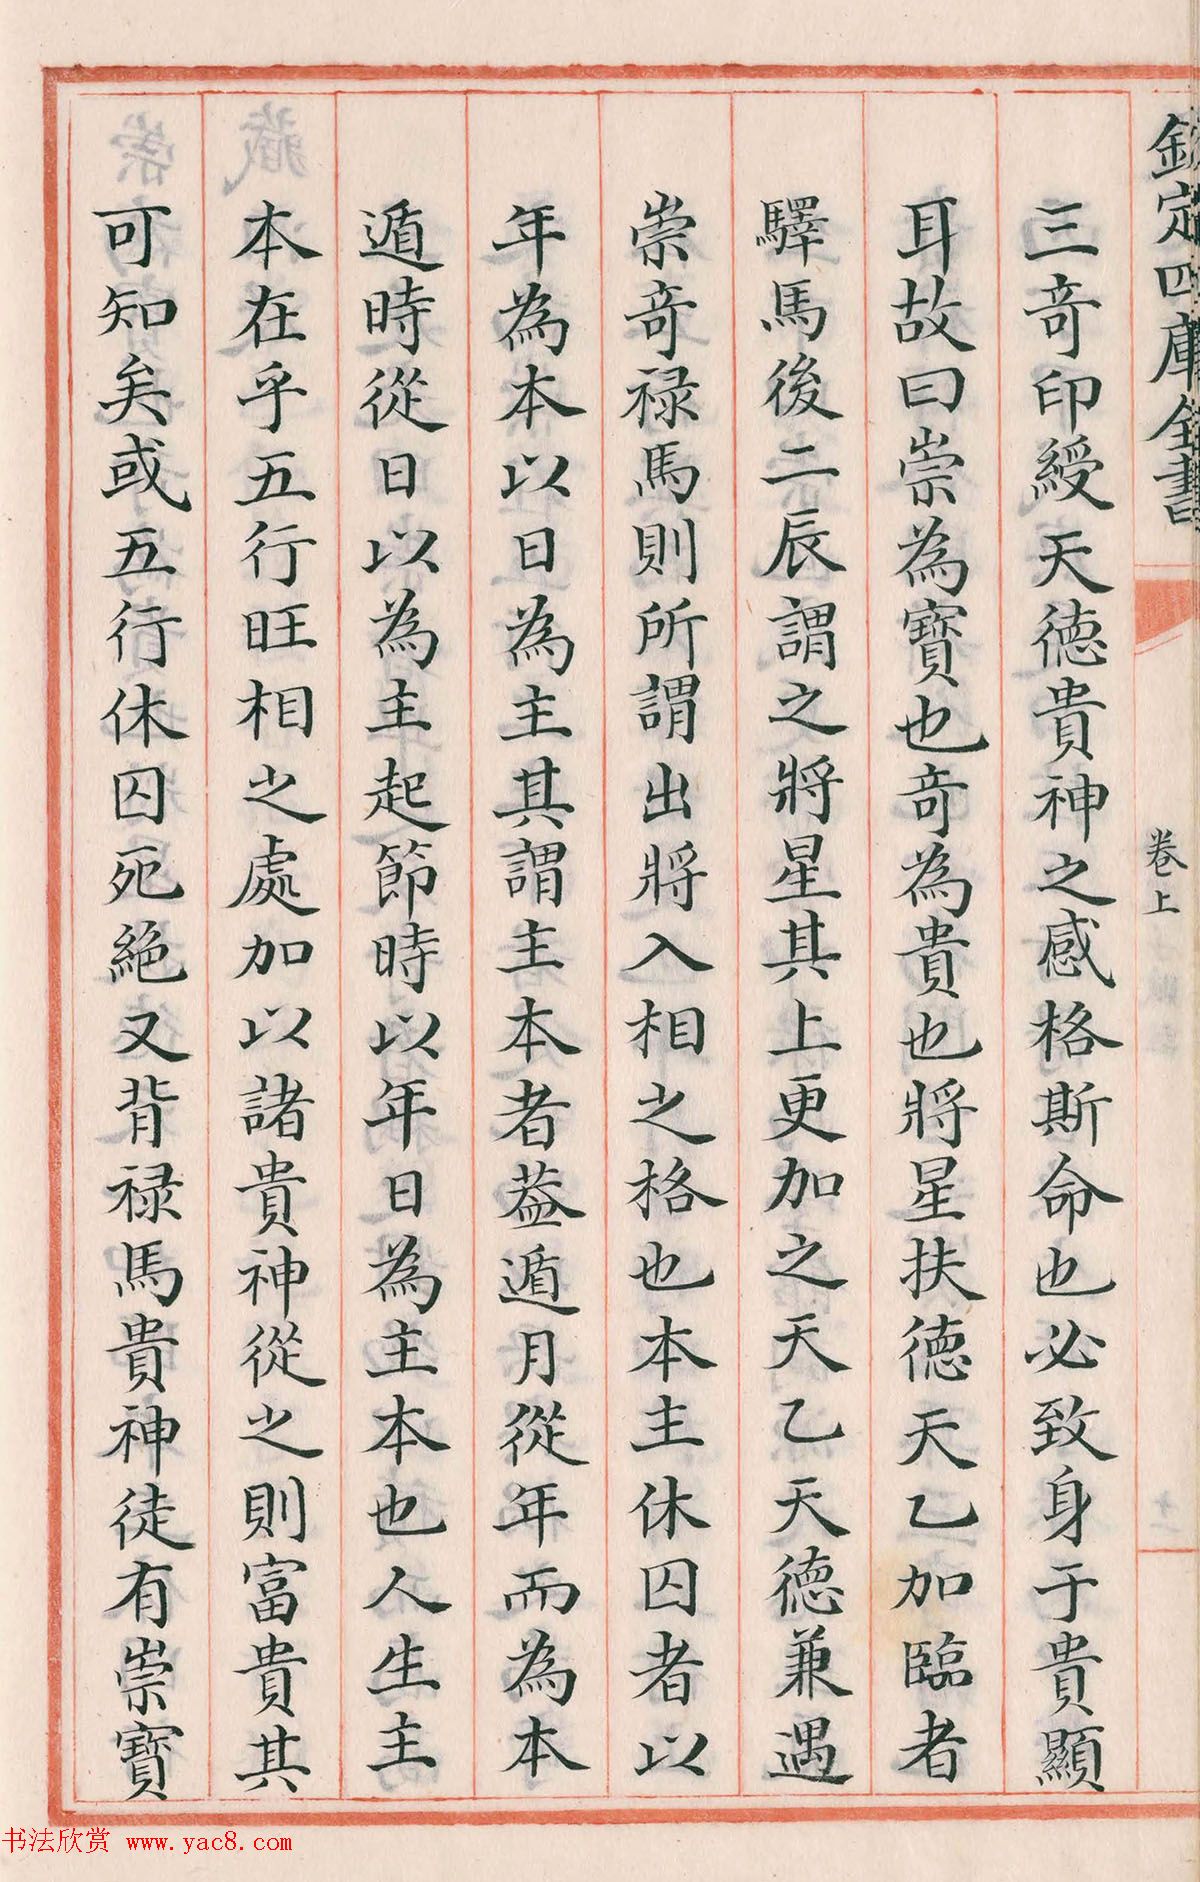 欽定四庫全書
卷上
三竒印綬天德貴神之感格斯命也必致身于貴顯
耳故曰崇為寶也竒為貴也將星扶德天乙加臨者
驛馬後二辰謂之將星其上更加之天乙天德兼遇
崇竒禄馬則所謂出將入相之格也本主休囚者以
年為本以日為主其謂主本者葢遁月從年而為本
遁時從日以為主起節時以年日為主本也人生主
本在乎五行旺相之處加以諸貴神從之則富貴其
可知矣或五行休囚死絕又背禄馬貴神徒有崇寶
书法欣赏 www.yac8.com